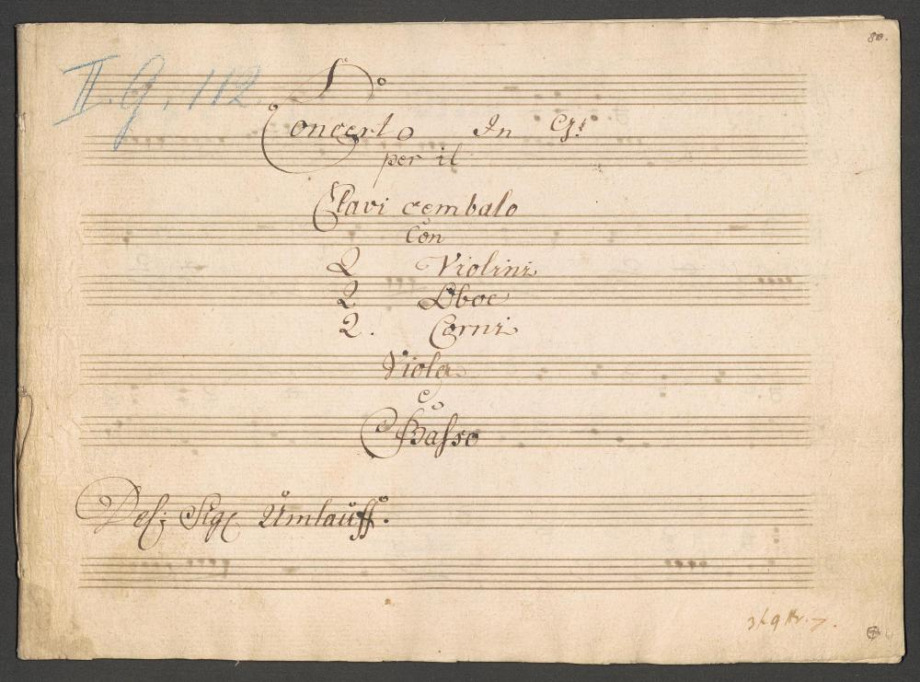 80.
II. 9. 112.
Concerto In
per il
Clavi cembalo
Con
2 Violini
2 Oboe
2. Corni
Viola
e
Basso
Del: Sigr Umlauff.